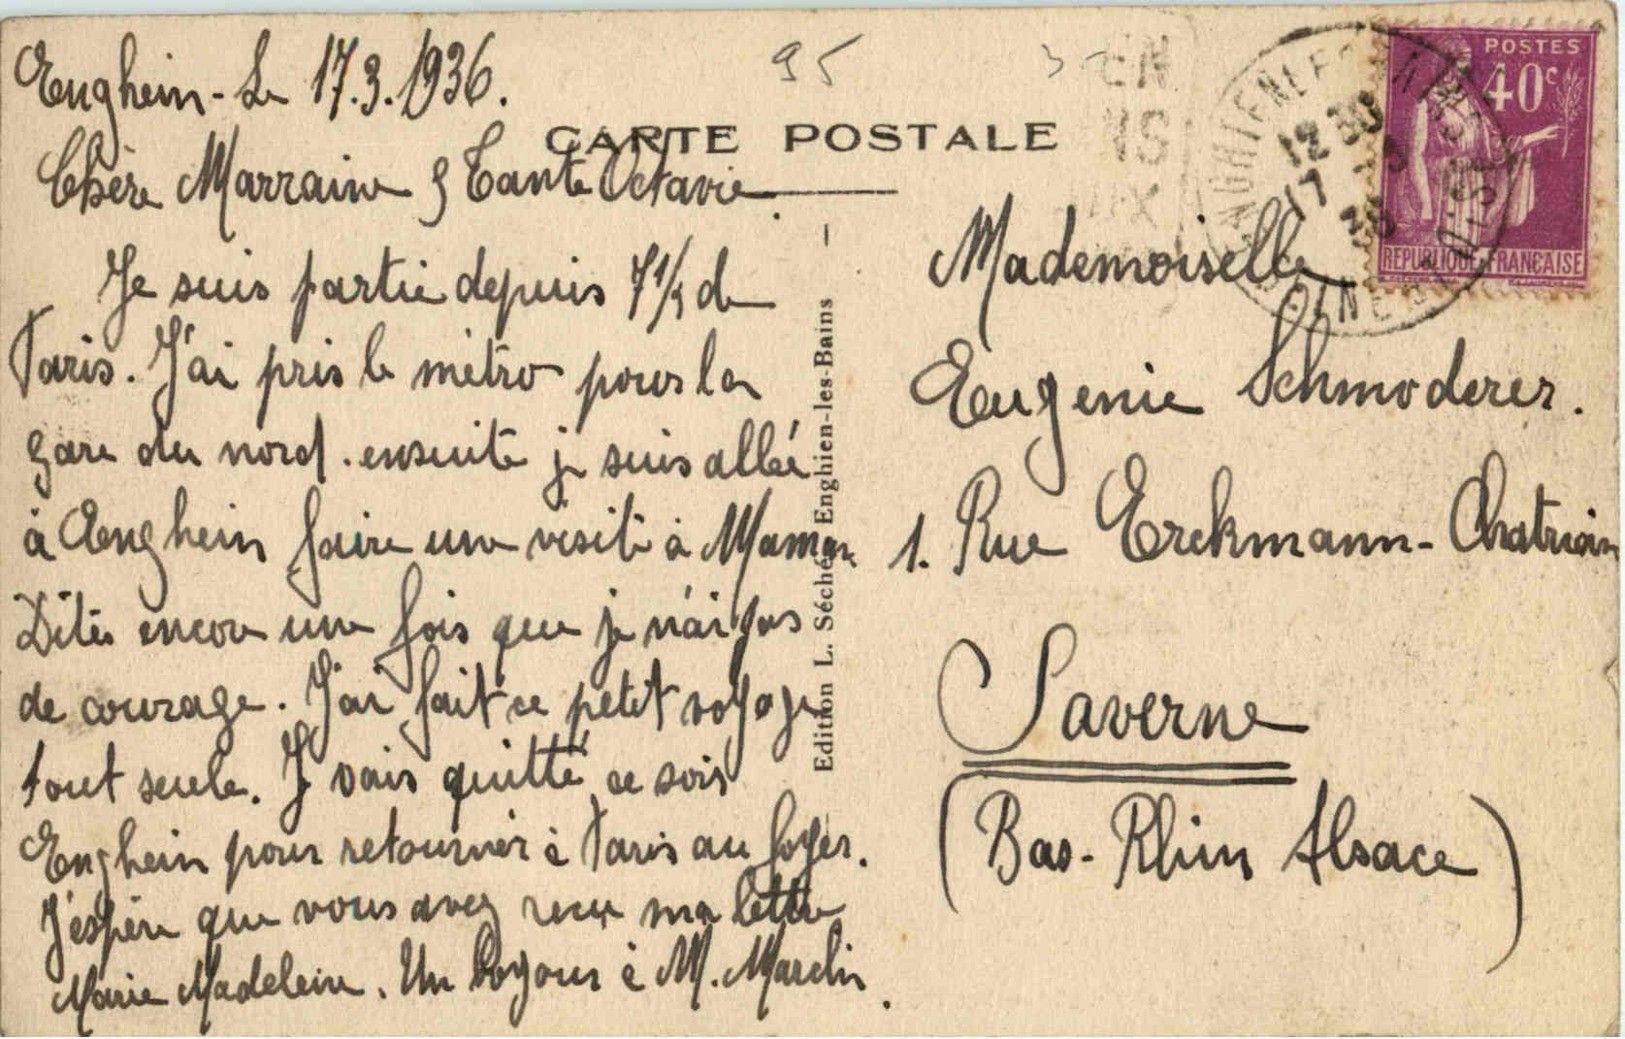 Enghein - Le 17.3.1936.
95
CARTE POSTALE
Chère Marraine & Tante Octavie.
Je suis partie depuis 7 1/2 de
Paris. J'ai pris le métro pour la
gare du nord. ensuite je suis allée
à Enghein faire une visite à Maman
Dites encore une fois que je n'ai pas
de courage. J'ai fait ce petit voyage
tout seule. Je vais quitté ce soir
Enghein pour retourner à Paris au foyer.
J'espère que vous avez reçu ma lettre
Marie Madeleine. Un bonjour à M.
Edition L. Séché, Enghien-les-Bains
POSTES
40c
REPUBLIQUE FRANÇAISE
ENGHIEN LES BAINS
12 30
17 3
36
SEINE
Mademoiselle
Eugenie Schmoderer.
1. Rue Erckmann-Chatrian
Saverne
(Bas-Rhin Alsace)